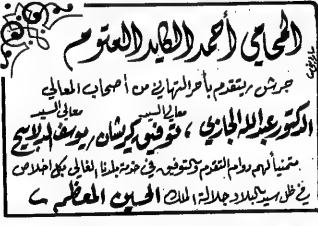 المحامي أحمد الكايد العتوم
جرش / يتقدم بأحر التهاني من أصحاب المعالي
معالي السيد معالي السيد
الدكتور عبدالله الجازي ، توفيق كريشان / يوسف الدلابيح
متمنياً لهم دوام التقدم والتوفيق في خدمة بلدنا الغالي بكل اخلاص
في ظل سيد البلاد جلالة الملك الحسين المعظم